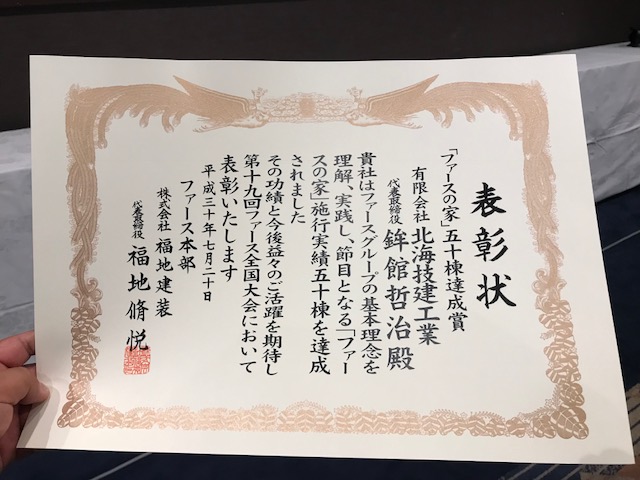 表彰状
「ファースの家」五十棟達成賞
有限会社 北海技建工業
代表取締役 鉾館哲治殿
貴社はファースグループの基本理念を
理解、実践し、節目となる「ファー
スの家」施行実績五十棟を達成
されました
その功績と今後益々のご活躍を期待し
第十九回ファース全国大会において
表彰いたします
平成三十年七月二十日
ファース本部
株式会社 福地建装
代表取締役 福地脩悦